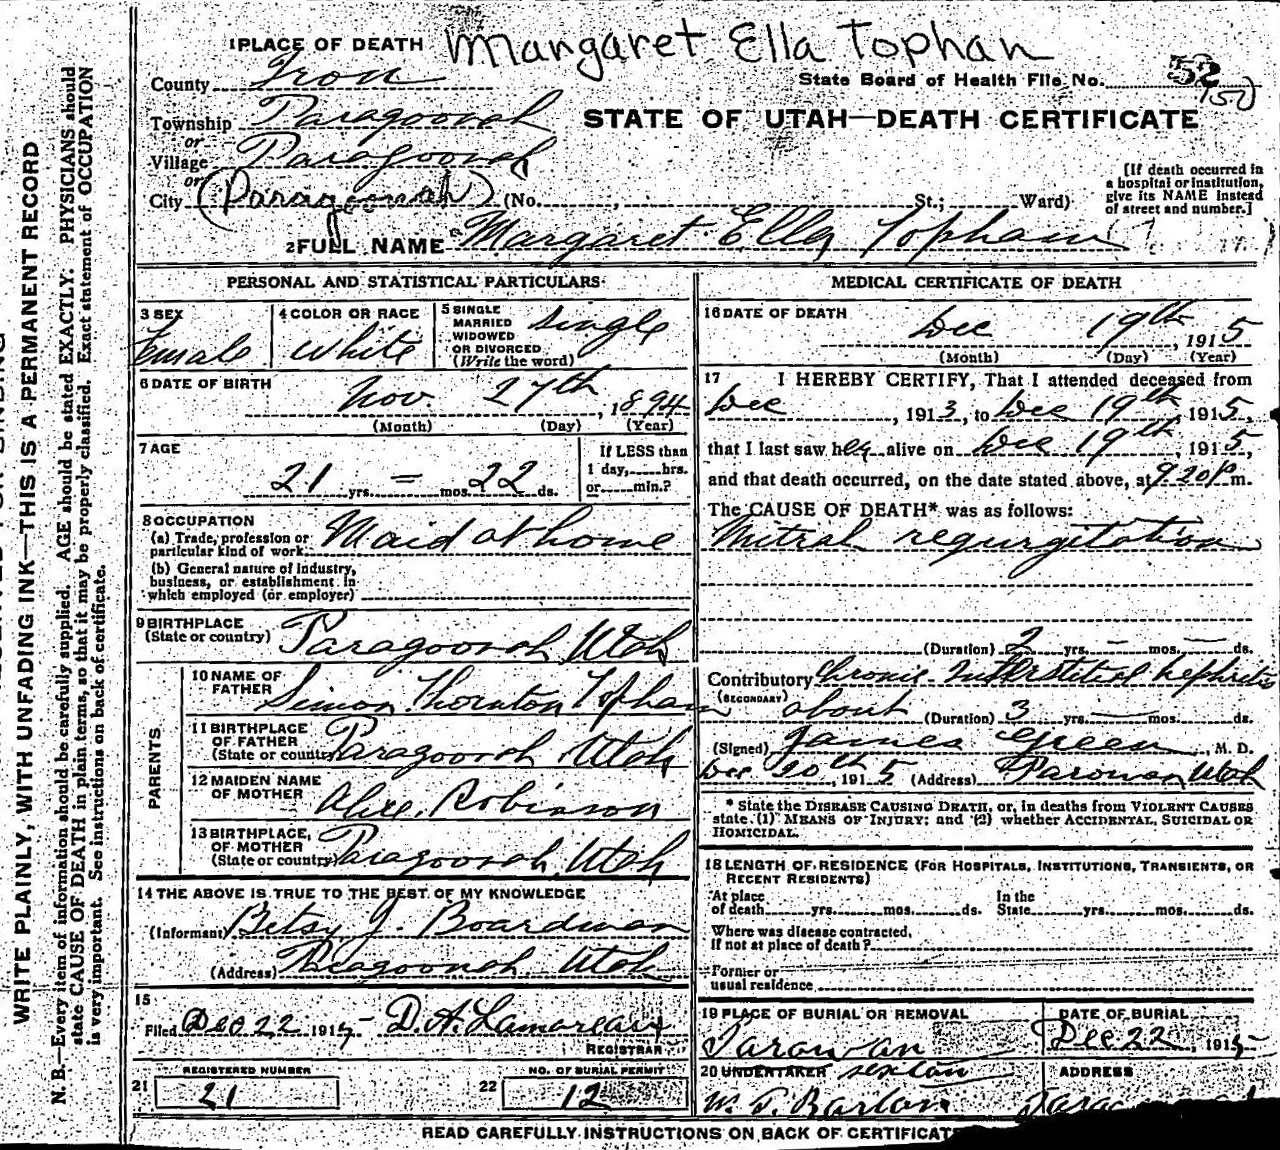 Margaret Ella Tophan
1 PLACE OF DEATH
County Iron
State Board of Health File No. 52
157
Township Paragoonah
or
Village Paragoonah
or
City (Paragoonah) (No. , St.; Ward)
STATE OF UTAH—DEATH CERTIFICATE
[If death occurred in
a hospital or institution,
give its NAME instead
of street and number.]
2 FULL NAME Margaret Ella Topham
PERSONAL AND STATISTICAL PARTICULARS
3 SEX
Female
4 COLOR OR RACE
White
5 SINGLE
MARRIED
WIDOWED
OR DIVORCED
(Write the word)
Single
6 DATE OF BIRTH
Nov. 27th, 1894
(Month) (Day) (Year)
7 AGE
21 yrs. – mos. 22 ds.
If LESS than
1 day, hrs.
or min.?
8 OCCUPATION
(a) Trade, profession or
particular kind of work Maid at home
(b) General nature of industry,
business, or establishment in
which employed (or employer)
9 BIRTHPLACE
(State or country) Paragoonah Utah
PARENTS
10 NAME OF
FATHER Simon Thornton Topham
11 BIRTHPLACE
OF FATHER
(State or country) Paragoonah Utah
12 MAIDEN NAME
OF MOTHER Alice Robinson
13 BIRTHPLACE
OF MOTHER
(State or country) Paragoonah, Utah
14 THE ABOVE IS TRUE TO THE BEST OF MY KNOWLEDGE
(Informant) Betsy J. Boardman
(Address) Paragoonah Utah
15
Filed Dec 22 1915 D. A. Lamoreaux
REGISTRAR
21 REGISTERED NUMBER
21
22 NO. OF BURIAL PERMIT
12
MEDICAL CERTIFICATE OF DEATH
16 DATE OF DEATH
Dec 19th, 1915
(Month) (Day) (Year)
17 I HEREBY CERTIFY, That I attended deceased from
Dec , 1913, to Dec 19th, 1915,
that I last saw her alive on Dec 19th, 1915,
and that death occurred, on the date stated above, at 9 20 P m.
The CAUSE OF DEATH* was as follows:
Mitral regurgitation
(Duration) 2 yrs. – mos. – ds.
Contributory Chronic Interstitial nephritis
(SECONDARY) about (Duration) 3 yrs. – mos. ds.
(Signed) James Green, M. D.
Dec 20th, 1915 (Address) Parowan Utah
* State the DISEASE CAUSING DEATH, or, in deaths from VIOLENT CAUSES
state (1) MEANS OF INJURY; and (2) whether ACCIDENTAL, SUICIDAL OR
HOMICIDAL.
18 LENGTH OF RESIDENCE (FOR HOSPITALS, INSTITUTIONS, TRANSIENTS, OR
RECENT RESIDENTS)
At place
of death yrs. mos. ds.
In the
State yrs. mos. ds.
Where was disease contracted,
if not at place of death?
Former or
usual residence
19 PLACE OF BURIAL OR REMOVAL
Parowan
DATE OF BURIAL
Dec 22, 1915
20 UNDERTAKER sexton
W. T. Barton
ADDRESS
READ CAREFULLY INSTRUCTIONS ON BACK OF CERTIFICATE
WRITE PLAINLY, WITH UNFADING INK—THIS IS A PERMANENT RECORD
N. B.—Every item of information should be carefully supplied. AGE should be stated EXACTLY. PHYSICIANS should
state CAUSE OF DEATH in plain terms, so that it may be properly classified. Exact statement of OCCUPATION
is very important. See instructions on back of certificate.